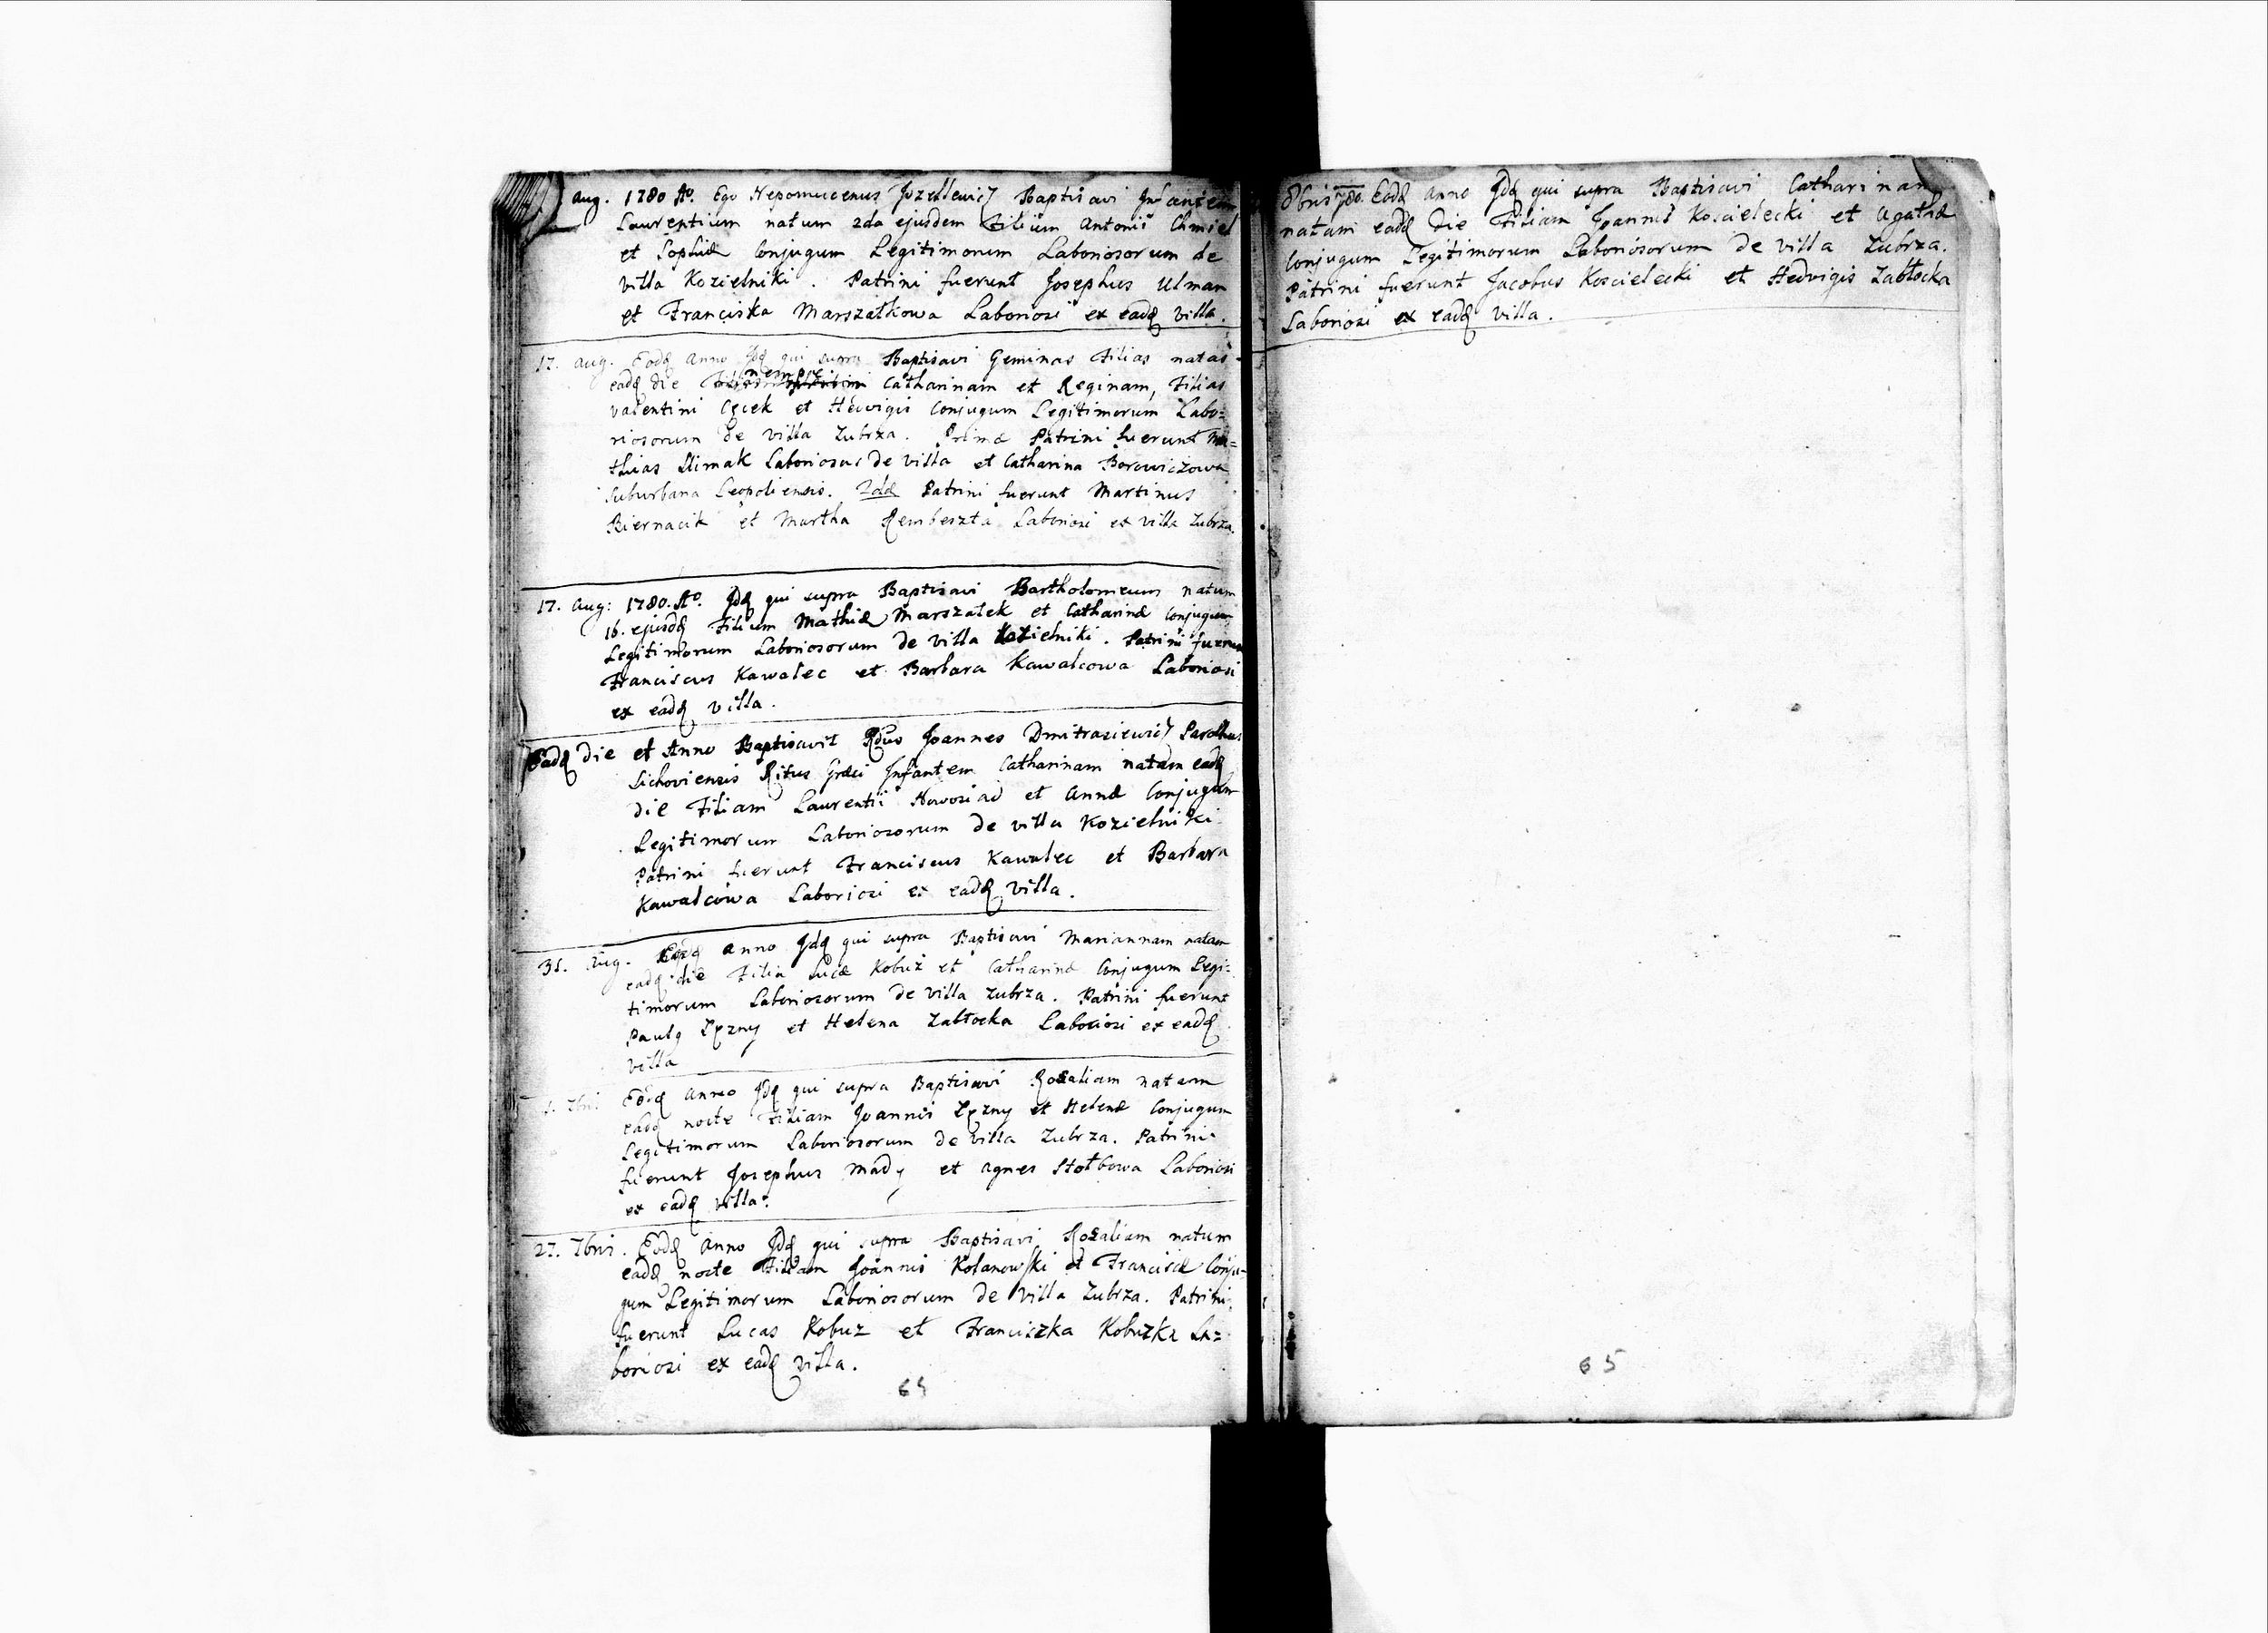 Aug. 1780 Ao. Ego Nepomucenus Baptisavi Infantem
Laurentium natum 2da ejusdem Filium Antonii Chmiel
et Sophiæ Conjugum Legitimorum Laboriosorum de
villa Kozielniki. Patrini fuerunt Josephus Ulman
et Franciska Marszałkowa Laboriosi ex eadq villa.
17. Aug. Eodq Anno Jdq qui supra Baptisavi Geminas Filias natas
eadq die nempe Catharinam et Reginam, Filias
Valentini et Hedvigis Conjugum Legitimorum Labo=
riosorum de villa Zubrza. Primæ Patrini fuerunt Ma=
thias Laboriosus de villa et Catharina Borowiczowa
Suburbana Leopoliensis. 2dæ Patrini fuerunt Martinus
Biernacik et Martha Rembeszta Laboriosi ex villa Zubrza.
17. Aug: 1780. Ao. Jdq qui supra Baptisavi Bartholomeum natum
16. ejusdq Filium Mathiæ Marszałek et Catharinæ Conjugum
Legitimorum Laboriosorum de villa Kozielniki. Patrini fuerun
Franciscus Kawalec et Barbara Kawalcowa Laboriosi
ex eadq villa.
Eadq die et Anno Baptisavit Rdus Joannes Parochus
Sichoviensis Ritus Græci Infantem Catharinam natam eadq
die Filiam Laurentii Nowosiad et Annæ Conjugum
Legitimorum Laboriosorum de villa Kozielniki
Patrini fuerunt Franciscus Kawalec et Barbara
Kawalcowa Laboriosi ex eadq villa.
31. Aug. Eodq Anno Jdq qui supra Baptisavi Mariannam natam
eadq die Filia Lucæ Kobuz et Catharinæ Conjugum Legi=
timorum Laboriosorum de villa Zubrza. Patrini fuerunt
Paulq Lęzny et Helena Zabłocka Laboriosi ex eadq
villa
7bri Eodq Anno Jdq qui supra Baptisavi Rosaliam natam
eadq nocte Filiam Joannis Lęzny et Helenæ Conjugum
Legitimorum Laboriosorum de villa Zubrza. Patrini
fuerunt Josephus Mady et Agnes Stołbowa Laboriosi
ex eadq villa.
27. 7bris. Eodq Anno Jdq qui supra Baptisavi Rosaliam natam
eadq nocte Filiam Joannis Kolanowski et Franciscæ Conju-
gum Legitimorum Laboriosorum de villa Zubrza. Patrini
fuerunt Lucas Kobuz et Franciszka Kobuzka La=
boriosi ex eadq villa.
64
8bris 780. Eodq Anno Jdq qui supra Baptisavi Catharinam
natam eadq die Filiam Joannis Koscielecki et Agathæ
Conjugum Legitimorum Laboriosorum de villa Zubrza.
Patrini fuerunt Jacobus Koscielecki et Hedvigis Zabłocka
Laboriosi ex eadq villa.
65